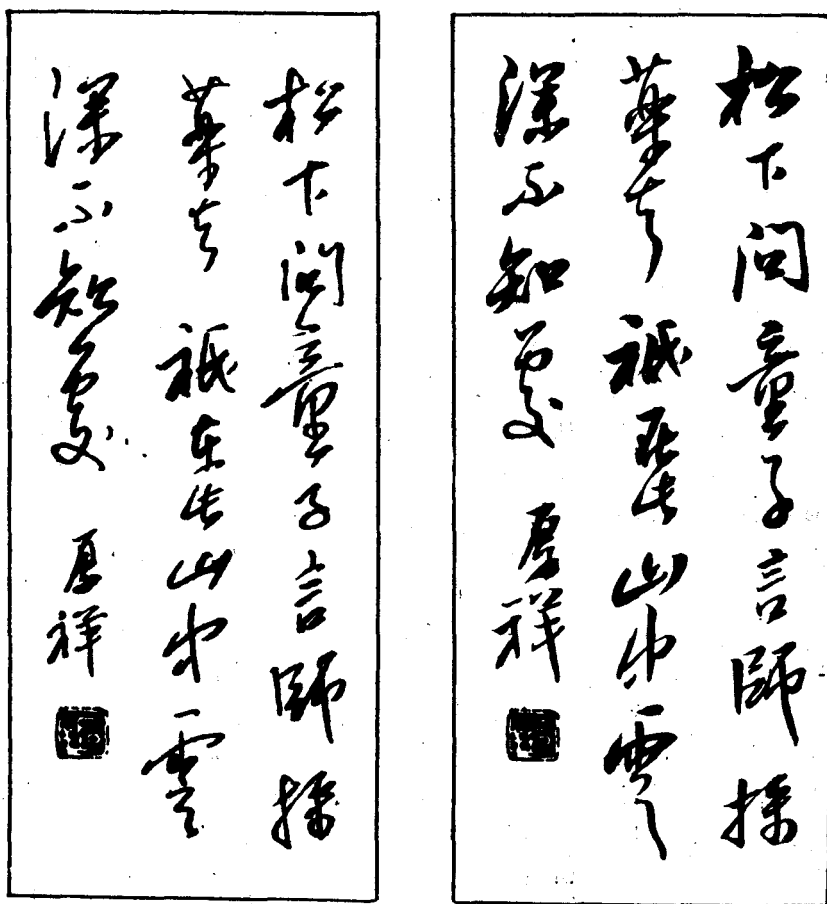 松下問童子言師採
藥去祇在此山中雲
深不知處 厚祥
松下問童子言師採
藥去祇在此山中雲
深不知處 厚祥